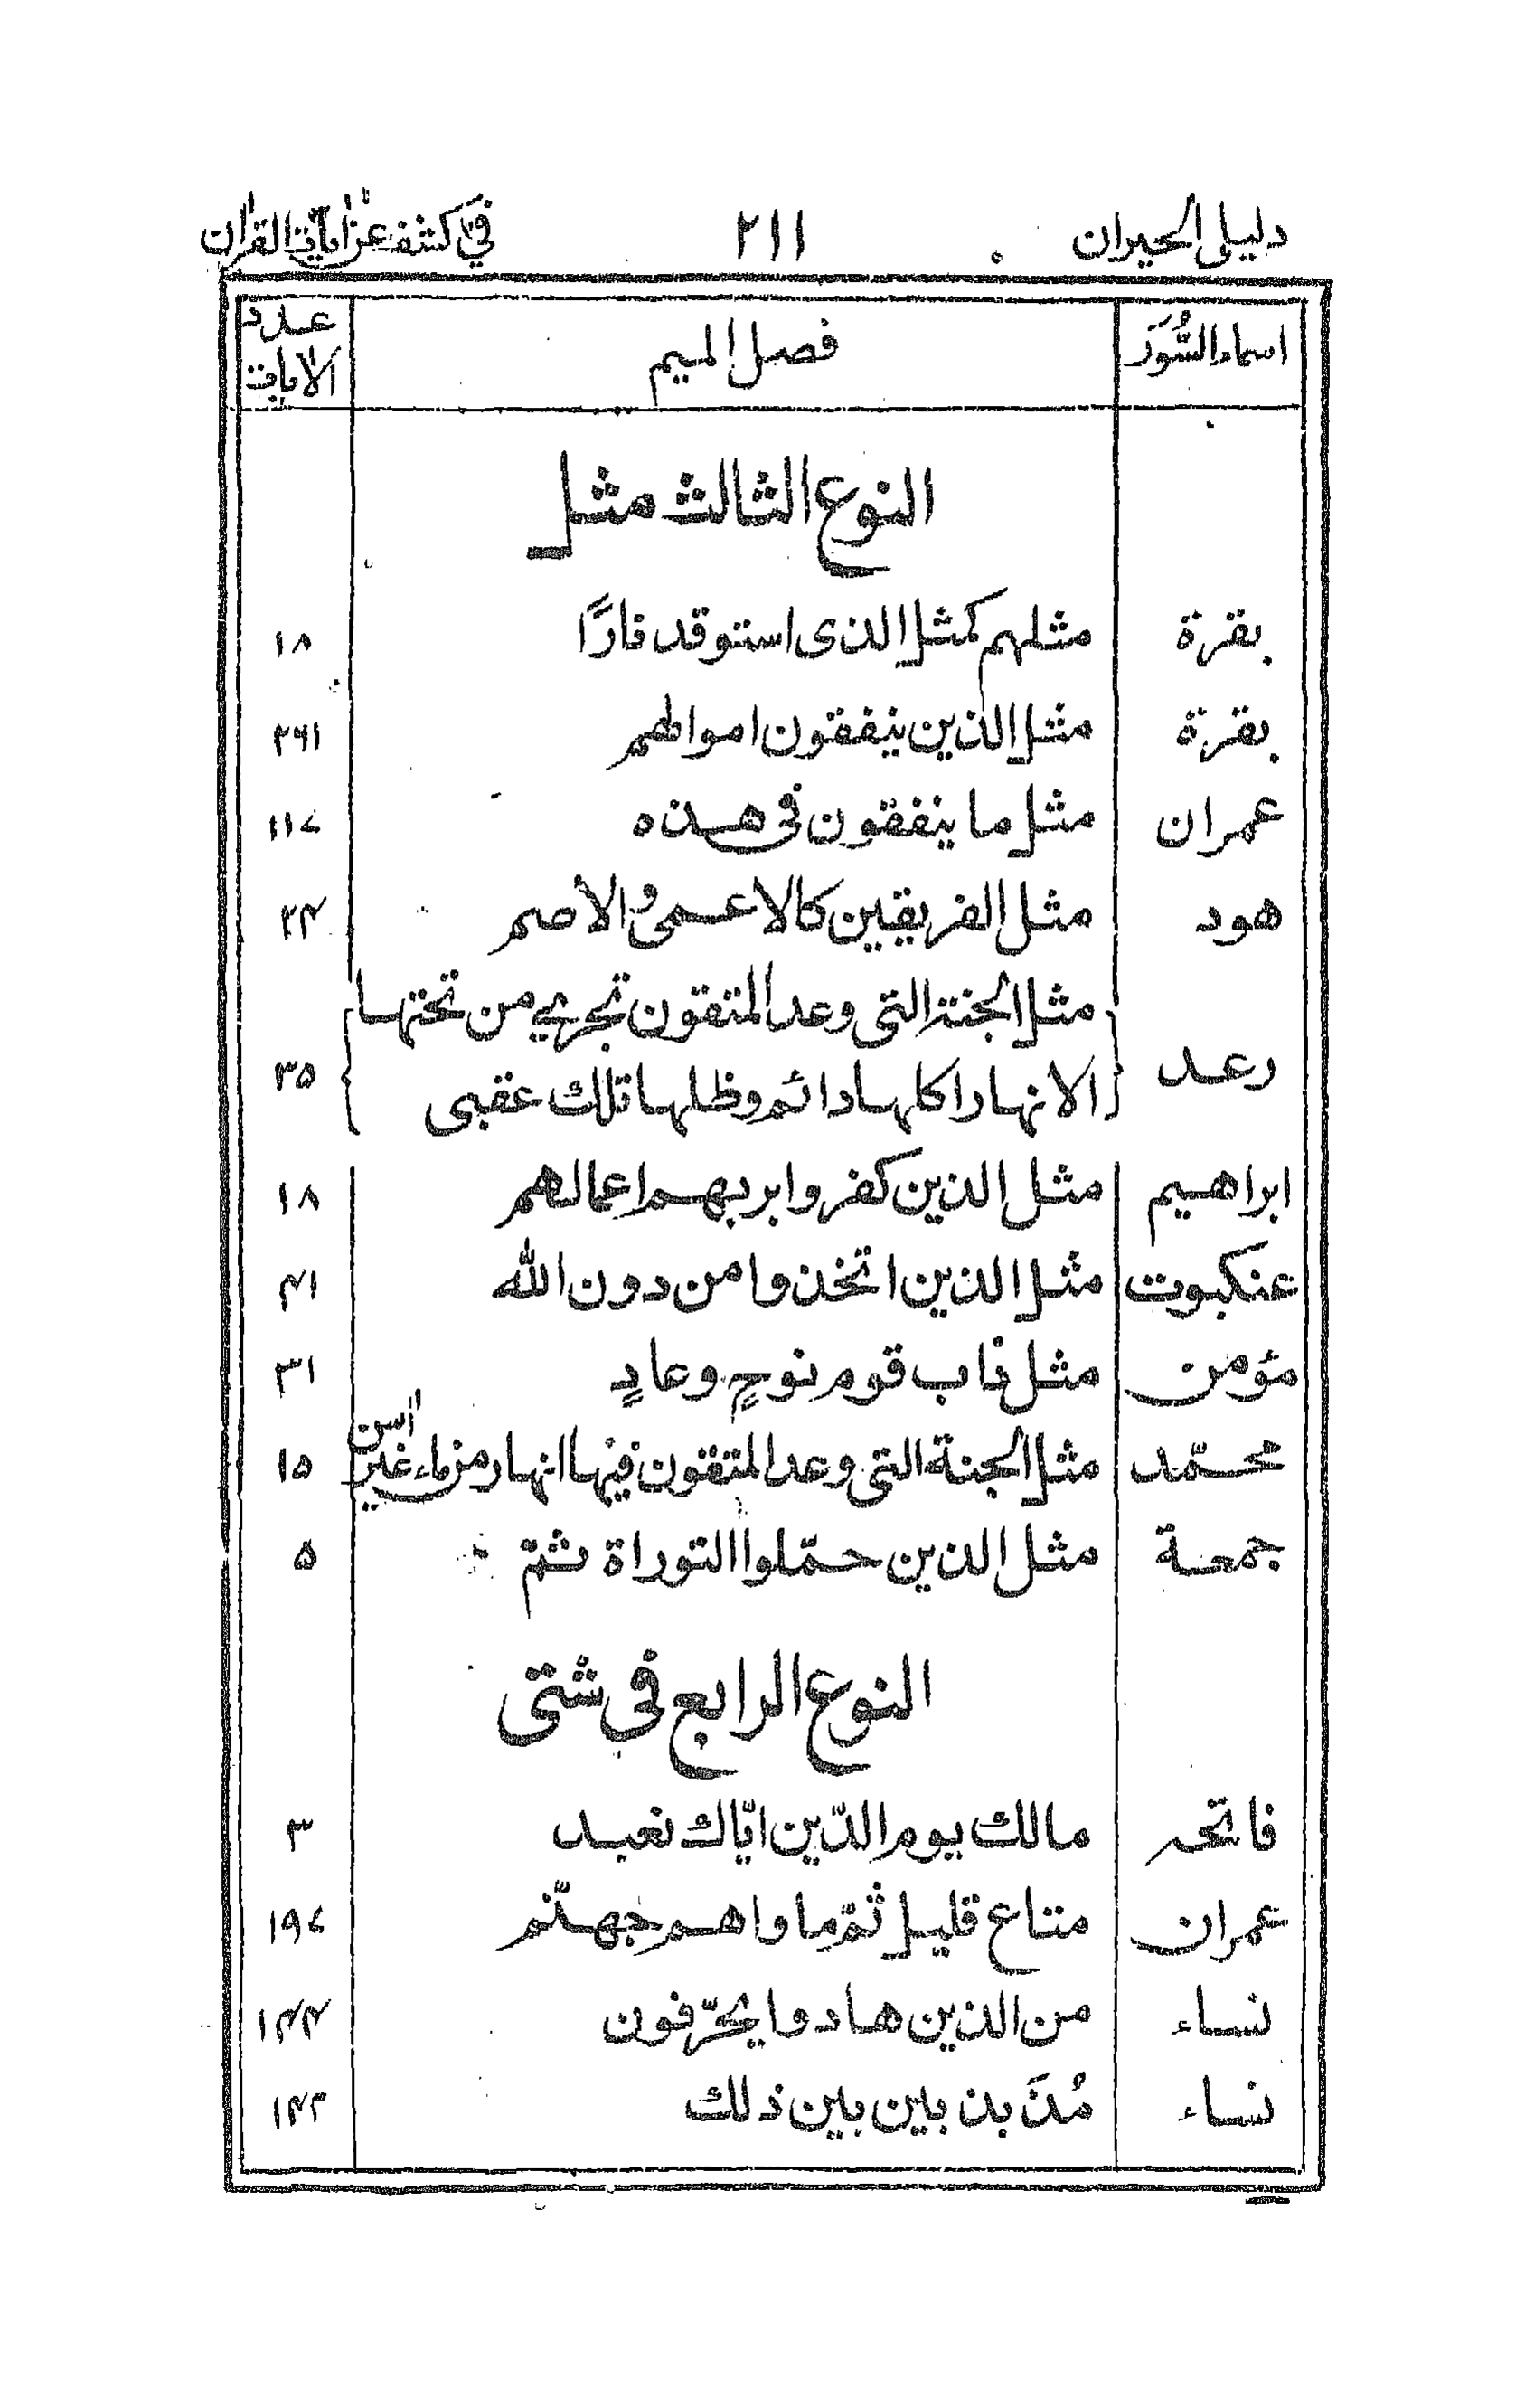 دليل الحيران ٢١١ في كشف عن ايات القران
اسماء السُّوَر فصل الميم عدد الايات
النوع الثالث مثل
بقرة مثلهم كمثل الذى استوقد نارًا ١٨
بقرة مثل الذين ينفقون اموالهم ٢٦١
عمران مثل ما ينفقون فى هذه ١١٧
هود مثل الفريقين كالاعمى والاصم ٢٤
رعد مثل الجنة التى وعد المتقون تجرى من تحتها
الانهار اكلها دائم وظلها تلك عقبى ٣٥
ابراهيم مثل الذين كفروا بربهم اعمالهم ١٨
عنكبوت مثل الذين اتخذوا من دون الله ٤١
مؤمن مثل داب قوم نوحٍ وعادٍ ٣١
محمّد مثل الجنة التى وعد المتقون فيها انهار من ماء غير اسن ١٥
جمعة مثل الذين حمّلوا التوراة ثمّ ٥
النوع الرابع فى شتى
فاتحه مالك يوم الدّين ايّاك نعبد ٣
عمران متاع قليل ثمّ ماواهم جهنّم ١٩٧
نساء من الذين هادوا يحرّفون ١٤٤
نساء مُذَبذبين بين ذلك ١٤٢